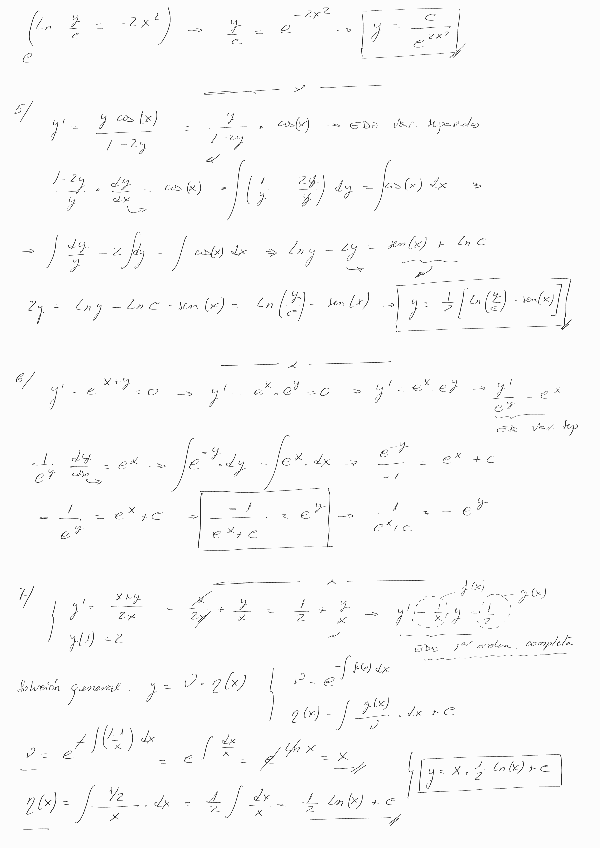 e^(ln y/c = -2x²) → y/c = e^(-2x²) → y = c/e^(2x²)
5/ y' = y cos(x)/(1-2y) = y/(1-2y) · cos(x) → EDO var. separadas
(1-2y)/y · dy/dx = cos(x) → ∫(1/y - 2y/y) dy = ∫cos(x) dx ⇒
⇒ ∫ dy/y - 2∫dy = ∫ cos(x) dx ⇒ ln y - 2y = sen(x) + ln c
2y = ln y - ln c - sen(x) = ln(y/c) - sen(x) → y = 1/2 [ln(y/c) - sen(x)]
6/ y' - e^(x+y) = 0 → y' - e^x · e^y = 0 → y' = e^x e^y → y'/e^y = e^x
EDO var sep
1/e^y dy/dx = e^x → ∫e^(-y) · dy = ∫e^x · dx → e^(-y)/-1 = e^x + c
- 1/e^y = e^x + c → -1/(e^x + c) = e^y → 1/(e^x + c) = - e^y
7/ { y' = (x+y)/2x = x/2x + y/x = 1/2 + y/x → y' - 1/x · y = 1/2
y(1) = 2
f(x) g(x)
EDO 1er orden completa
Solución general. y = v · η(x) { v = e^(-∫f(x) dx)
η(x) = ∫ g(x)/v · dx + c
v = e^(+∫(+1/x) dx) = e^(∫dx/x) = e^(ln x) = x
η(x) = ∫ (1/2)/x · dx = 1/2 ∫ dx/x = 1/2 ln(x) + c
y = x · 1/2 ln(x) + c